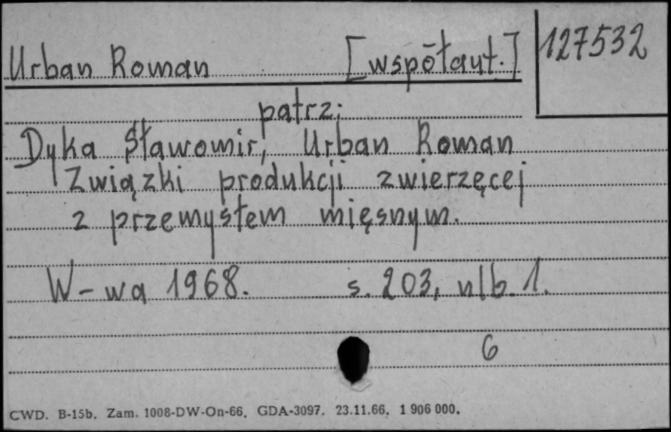 Urban Roman [współaut.] 127532
patrz:
Dyka Sławomir, Urban Roman
Związki produkcji zwierzęcej
z przemysłem mięsnym.
W-wa 1968. s. 203, nlb. 1.
6
CWD. B-15b. Zam. 1008-DW-On-66. GDA-3097. 23.11.66. 1 906 000.